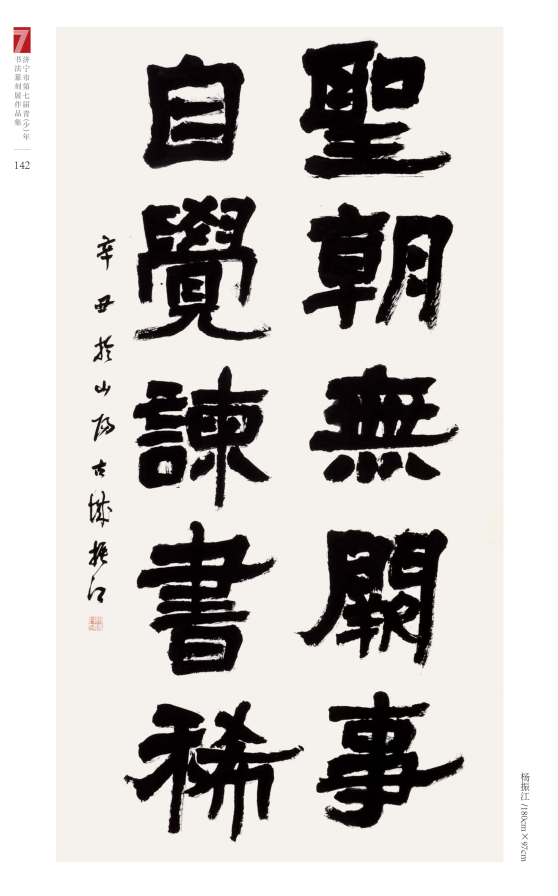 7
济宁市第七届青（少）年
书法篆刻展作品集
142
聖朝無闕事
自覺諫書稀
辛丑於山陽古城振江
杨振江 /180cm×97cm